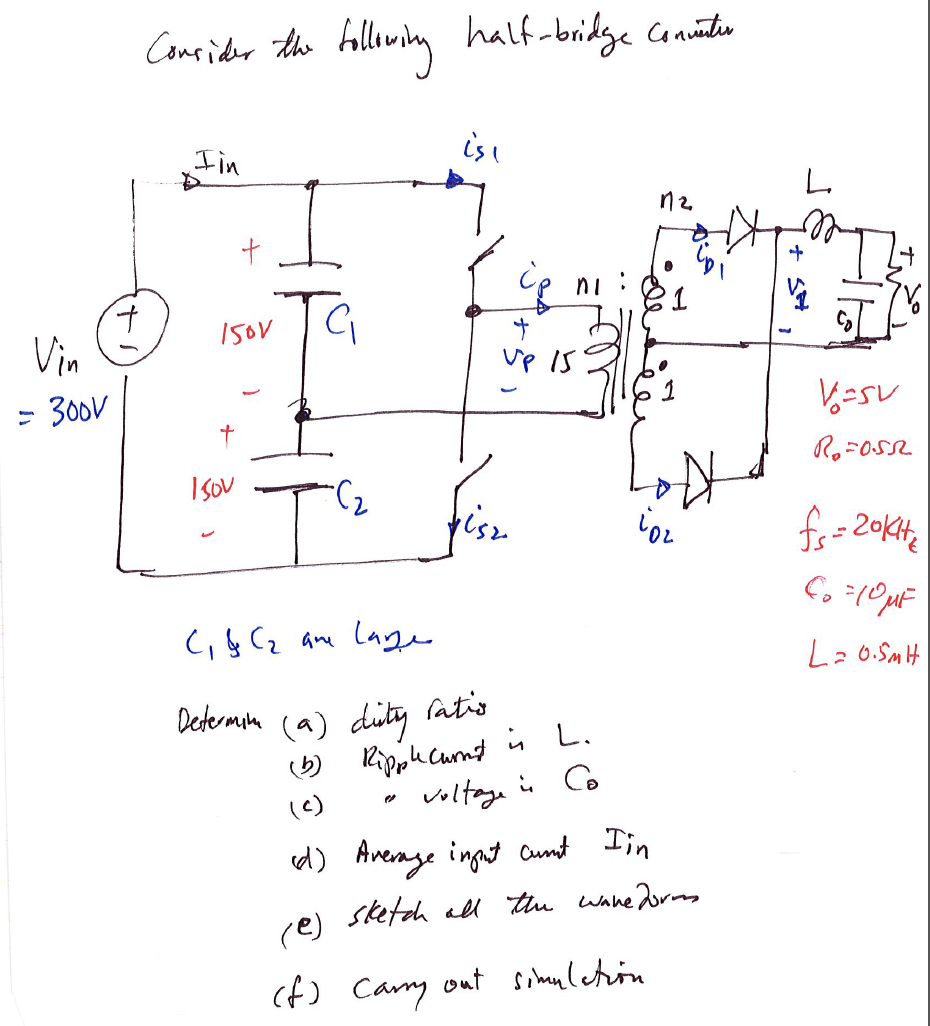 Consider the following half-bridge converter
Iin
is1
L
n2
iD1
+
V1
-
+
Vo
-
Co
ip
n1 :
1
+
Vp
-
15
1
+
150V
-
C1
+
-
Vin
= 300V
+
150V
-
C2
is2
iD2
Vo=5V
Ro=0.5Ω
fs=20KHz
Co=10μF
L=0.5mH
C1 & C2 are large
Determine (a) duty ratio
(b) Ripple current in L.
(c) " voltage in Co
(d) Average input current Iin
(e) sketch all the waveforms
(f) Carry out simulation